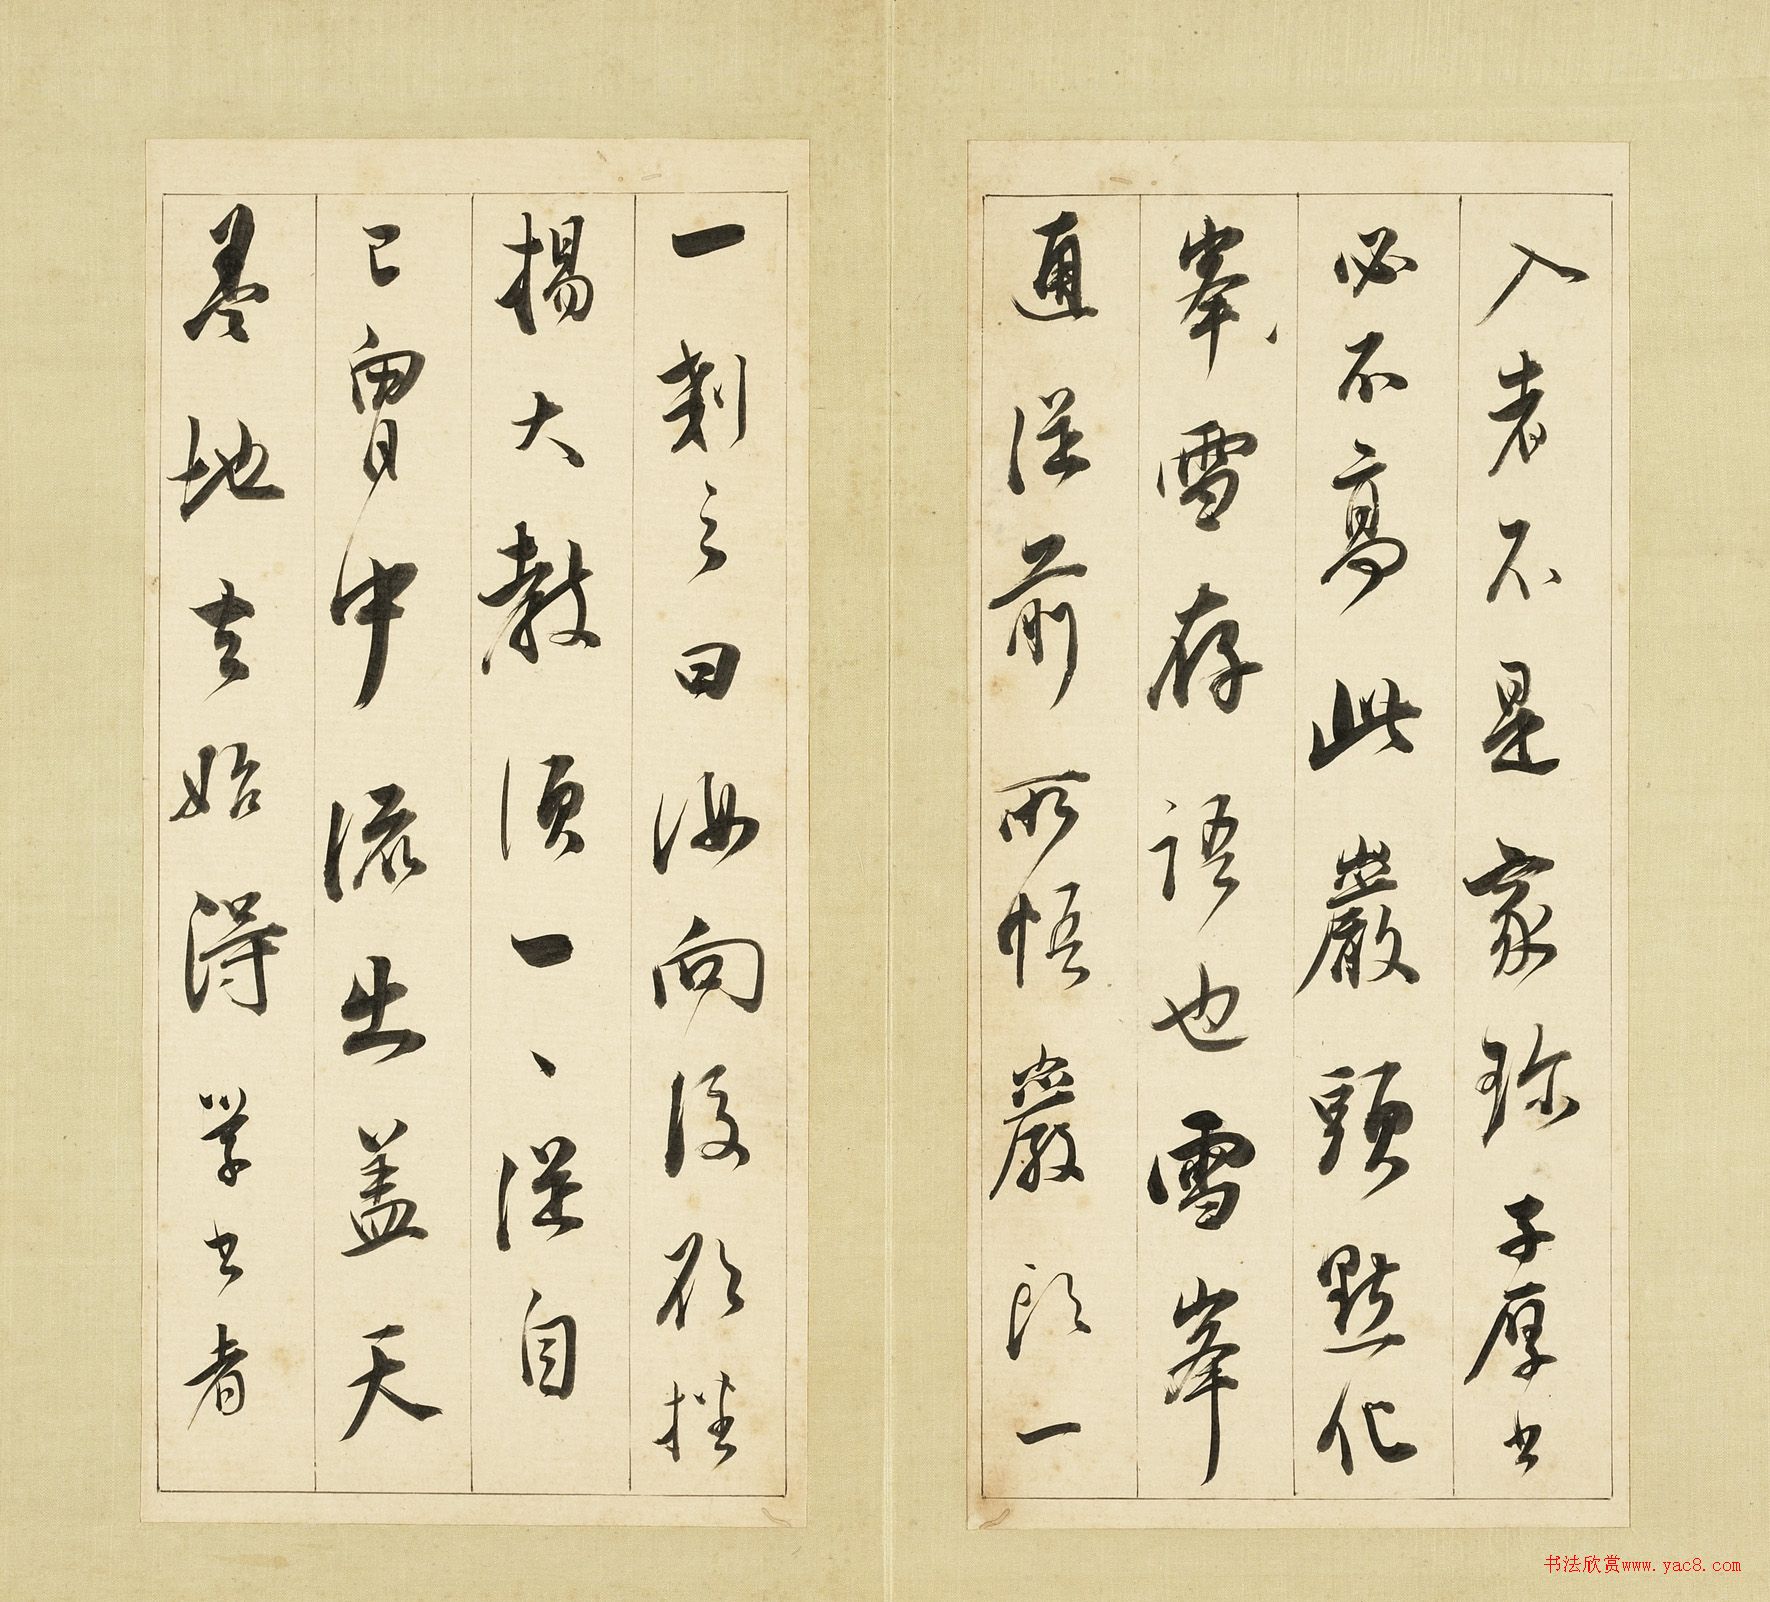 入者不是家珍子厚书
必不高此巖頭點化
峯雪存語也雪峯
通從前所悟巖頭一
一剗之曰汝向後欲播
揚大教須一一從自
己胷中流出盖天
盖地去始得学书者
书法欣赏www.yac8.com